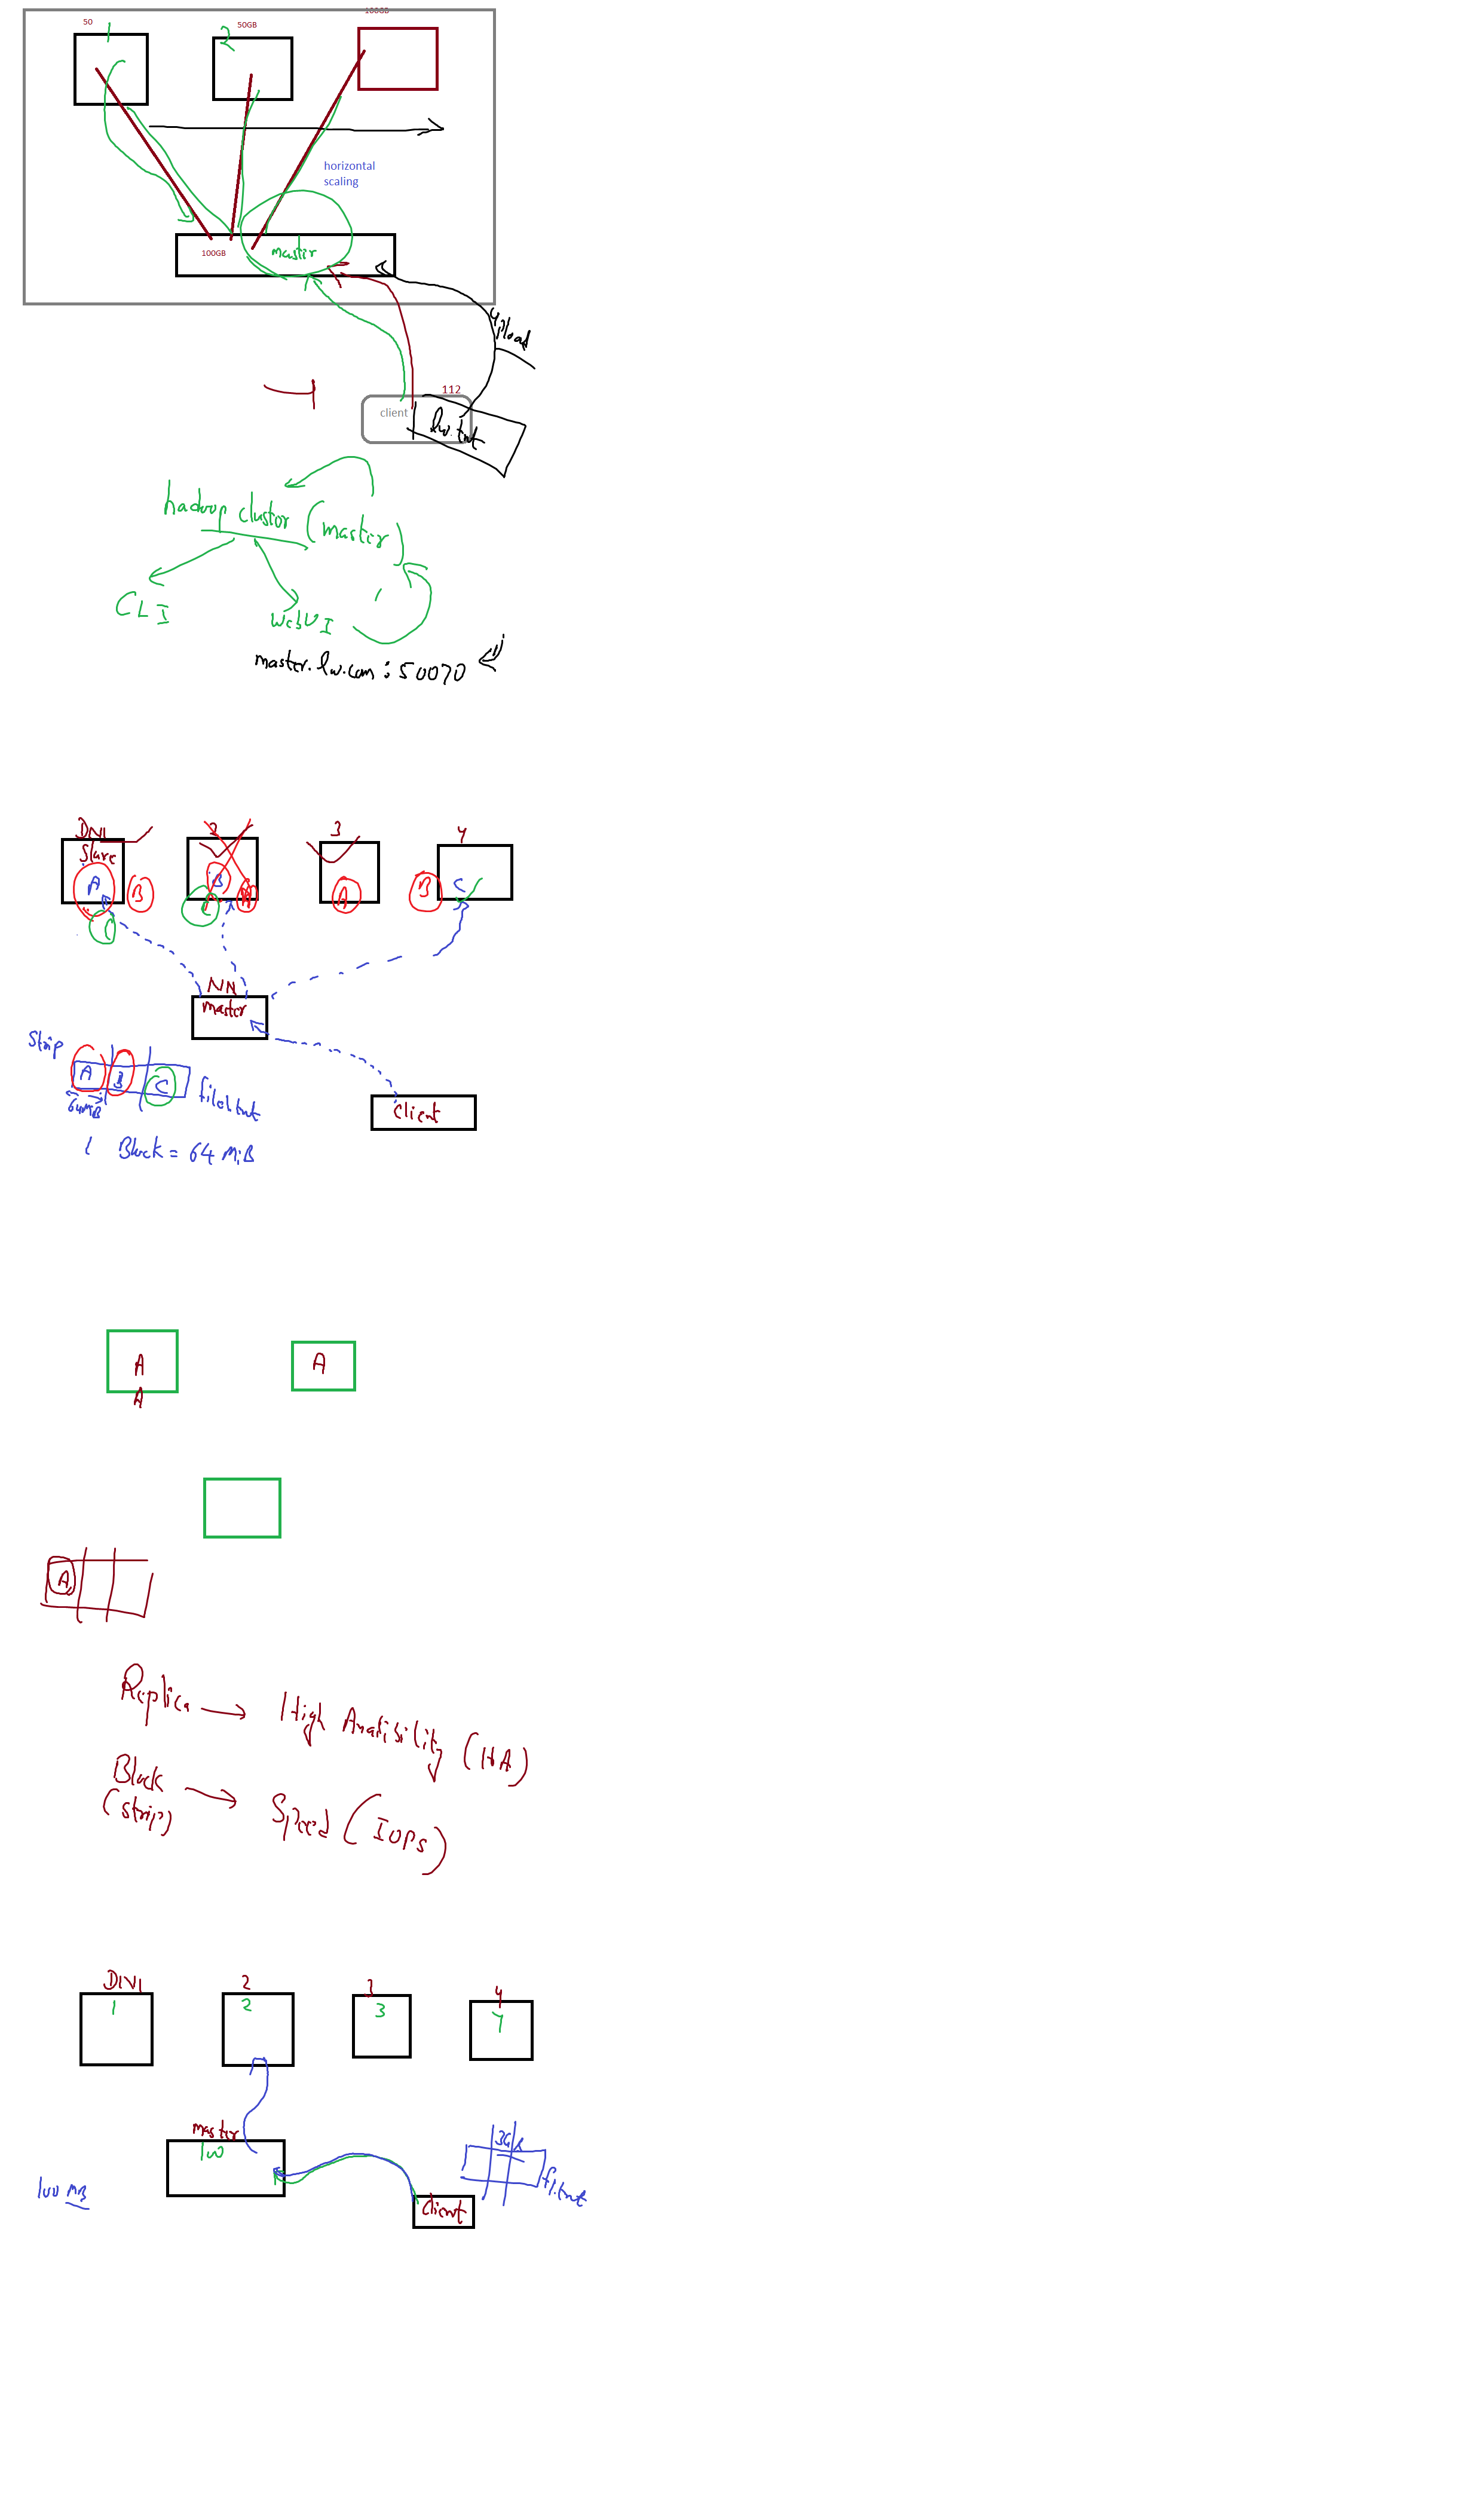 50
50GB
100GB
1
2
horizontal
scaling
100GB
master
upload
112
client
lw.txt
hadoop clustor (master)
CLI
WebUI
master.lw.com:50070
DN1
2
3
4
Slave
A
B
B
C
A
A
B
C
C
NN
master
Strip
A
B
C
64MB
file1.txt
client
1 Block = 64 MiB
A
A
A
A
Replica → High Availibility (HA)
Block → Speed (IOPS)
(strip)
DN1
2
3
4
1
2
3
4
master
100
100 MB
client
f1.txt